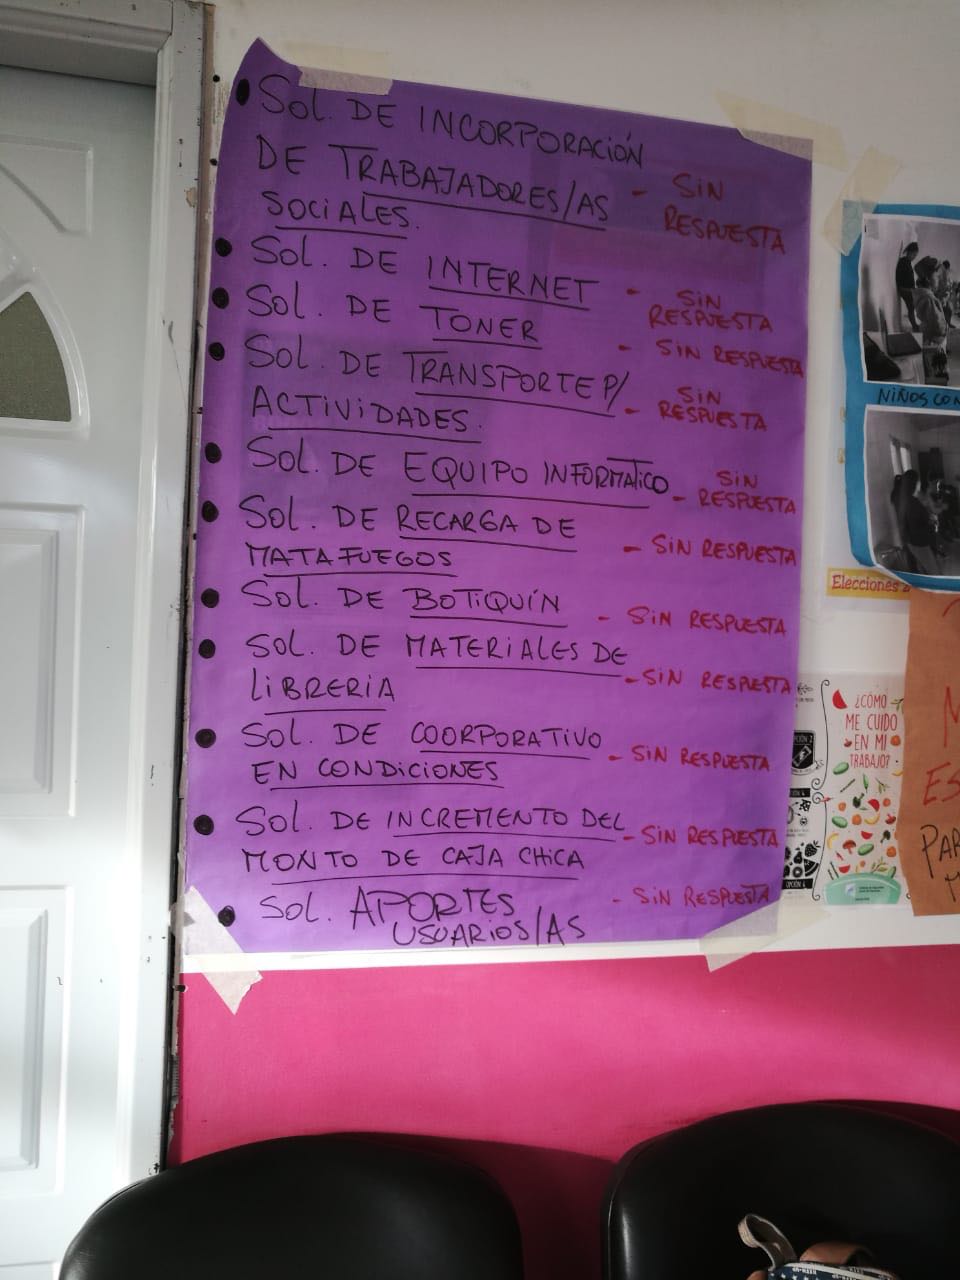 Sol. DE INCORPORACIÓN
DE TRABAJADORES/AS - SIN
SOCIALES. RESPUESTA
Sol. DE INTERNET - SIN
RESPUESTA
Sol. DE TONER - SIN RESPUESTA
Sol. DE TRANSPORTE P/ SIN
ACTIVIDADES. - RESPUESTA
Sol. DE EQUIPO INFORMATICO - SIN
RESPUESTA
Sol. DE RECARGA DE
MATAFUEGOS - SIN RESPUESTA
Sol. DE BOTIQUÍN - SIN RESPUESTA
Sol. DE MATERIALES DE
LIBRERIA - SIN RESPUESTA
Sol. DE COORPORATIVO
EN CONDICIONES - SIN RESPUESTA
Sol. DE INCREMENTO DEL - SIN RESPUESTA
MONTO DE CAJA CHICA
Sol. APORTES - SIN RESPUESTA
USUARIOS/AS
NIÑOS CON
Elecciones
¿CÓMO
ME CUIDO
EN MI
TRABAJO?
OPCIÓN 2
OPCIÓN 6
M
ES
PAR